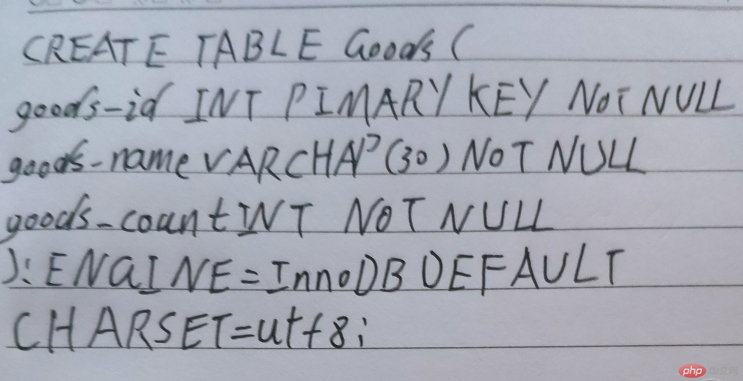 CREATE TABLE Goods (
goods-id INT PIMARY KEY NOT NULL
goods-name VARCHAR(30) NOT NULL
goods-count INT NOT NULL
): ENGINE=InnoDB DEFAULT
CHARSET=utf8;
php